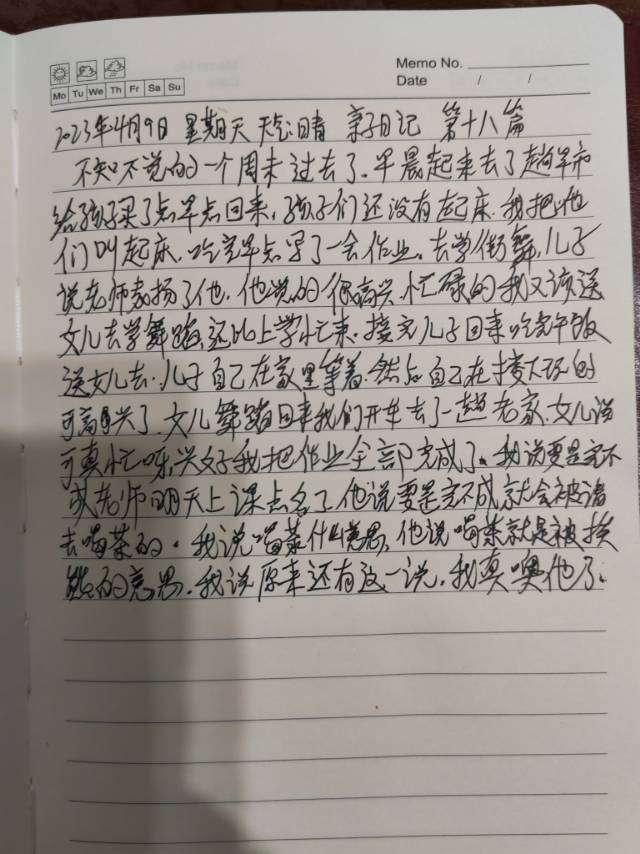 Memo No.
Mo Tu We Th Fr Sa Su
Date / /
2023年4月9日 星期天 天气:晴 亲子日记 第十八篇
不知不觉的一个周末过去了.早晨起来去了趟早市
给孩子买了点早点回来,孩子们还没有起床.我把他
们叫起床.吃完早点写了一会作业。去学街舞,儿子
说老师表扬了他,他说的很高兴.忙碌的我又该送
女儿去学舞蹈,还比上学忙来.接完儿子回来吃完午饭
送女儿去.儿子自己在家里等着.然后自己在接
可高兴了.女儿舞蹈回来我们开车去了一趟老家.女儿说
可真忙呀,兴好我把作业全部完成了。我说要是完不
成老师明天上课点名了.他说要是完不成就会被请
去喝茶的。我说喝茶什么意思,他说喝茶就是被挨
的意思.我说原来还有这一说.我真噢他了.